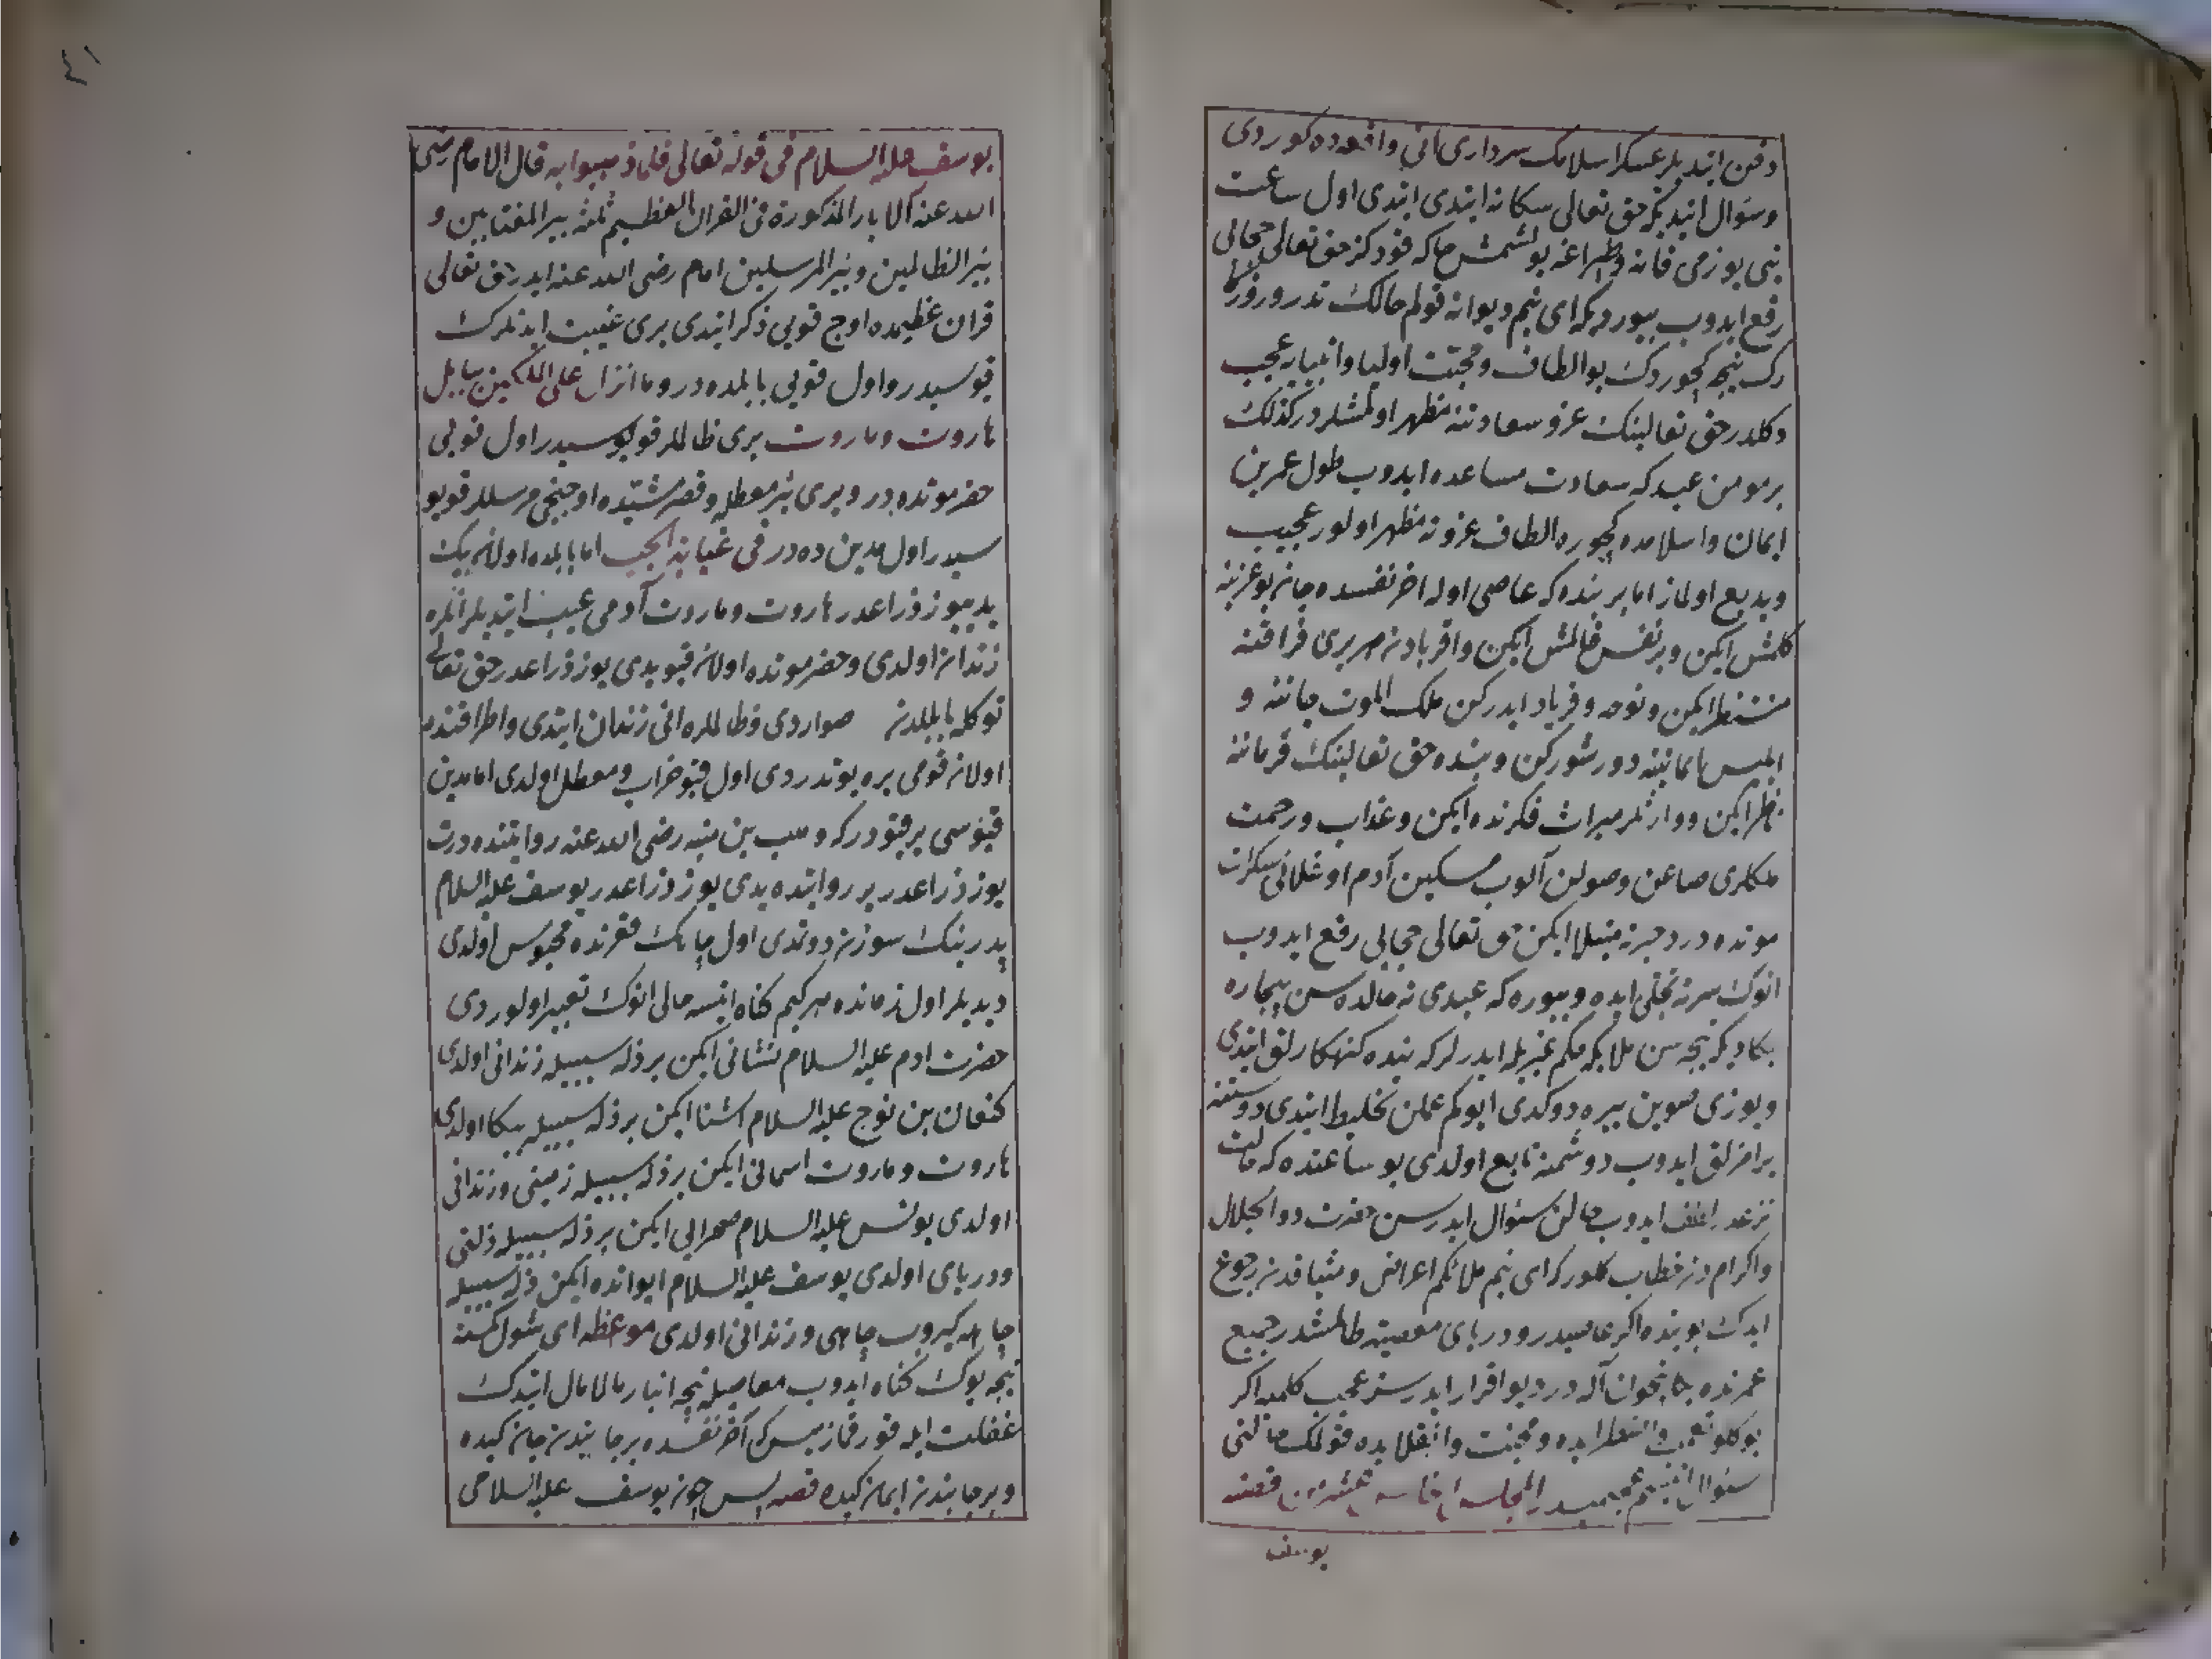 دفن ایتدیلر عسکر اسلامك سرداری انی واقعه‌ده كوردی
وسؤال ایتدیكه حق تعالی سكا نه ایتدی ایتدی اول ساعت
بنی یوزمی قانه وطپراغه بولشمش خاكه قودكز حق تعالی حجابی
رفع ایدوب بیوردیكه ای بنم دیوانه قولم حالك ندر
نیجه كچوردك بو الطاف ومحبت اولیا وانبیایه عجب
دكلدر حق تعالینك عز وسعادتنه مظهر اولمشلردر كذلك
بر مومن عبد كه سعادت مساعده ایدوب طول عمرین
ایمان واسلامده كچوره الطاف عزونه مظهر اولور عجیب
وبدیع اولماز اما بر بنده كه عاصی اوله اخر نفسده جان بوغزینه
كلمش ایكن وبر نفس قالمش ایكن واقربادن هر بری فراقنه
منتظر ایكن ونوحه وفریاد ایدركن ملك الموت جاننه و
ابلیس ایماننه دورشوركن وبنده حق تعالینك فرماننه
ناظر ایكن ووارثلر میراث فكرنده ایكن وعذاب ورحمت
ملكلری صاغن وصولن آلوب مسكین آدم اوغلانی سكرات
موتده درد حیرته مبتلا ایكن حق تعالی حجابی رفع ایدوب
انوك سرنه تجلی ایده وبیوره كه عبدی نه حالده سن بیچاره
بكا دیكه نیجه سن ملایكه حكم غیریله ایدرلر كه بنده كنهكارلق ایتدی
ویوزی صوین یره دوكدی ایو كم عملن تخلیط ایتدی دوستنه
یرامزلق ایدوب دوشمنه تابع اولدی بو ساعتده كه حالت
نزعدر لطف ایدوب حالن سؤال ایدرسن حضرت ذوالجلال
واكرام دن خطاب كلور كه ای بنم ملائكم اعراض ومیثاقدن رجوع
ایدك بو بنده اكر عاصیدر ودریای معصیته طالمشدر جمیع
عمرنده بكا بیچون آله در دیو اقرار ایدر سز عجب كلمه اكر
سؤال ایتسم عجب میدر المجلسه الخامسه عشر من قصه
یوسف
٤١
یوسف علیه السلام فی قوله تعالی فلما ذهبوا به قال الامام رضی
الله عنه الابار المذكورة فی القران العظیم ثلثه بیر المغتابین و
بئر الظالمین وبئر المرسلین امام رضی الله عنه ایدر حق تعالی
قران عظیمده اوج قویی ذكر ایتدی بری غیبت ایدنلرك
قیوسیدر واول قویی بابلده در وما انزل علی الملكین ببابل
هاروت وماروت بری ظالملر قویوسیدر اول قویی
حضرموتده در وبری بئر معطله وقصر مشیده اوجنجی مرسللر قویو
سیدر اول مدین ده در فی غیابة الجب اما بابلده اولان بیك
یدییوز ذراعدر هاروت وماروت آدمی غیبت ایتدیلر انلره
زندان اولدی وحضرموتده اولان قیو یدی یوز ذراعدر حق تعالی
توكله بابلدن صواردی وظالملره انی زندان ایتدی واطرافنده
اولان قومی یره یوتدردی اول قیو خراب ومعطل اولدی اما مدین
قیوسی بر قیودر كه وهب بن منبه رضی الله عنه روایتنده درت
یوز ذراعدر بر روایتده یدی یوز ذراعدر یوسف علیه السلام
پدرینك سوزین دوتمدی اول چاهك قعرنده محبوس اولدی
دیدیلر اول زمانده هر كیم كناه ایتسه حالی انوك تغییر اولوردی
حضرت ادم علیه السلام نشانی ایكن بر ذله سببیله زندانی اولدی
كنعان بن نوح علیه السلام اشنا ایكن بر ذله سببیله بیكا اولدی
هاروت وماروت اسمانی ایكن بر ذله سببیله زمینی وزندانی
اولدی یونس علیه السلام صحرایی ایكن بر ذله سببیله ذلتی
ودریای اولدی یوسف علیه السلام ایوانده ایكن ذله سببیله
چاهه كیروب چاهی وزندانی اولدی موعظه ای شول كمسنه
نیجه یوك كناه ایدوب معاصیله نیجه انبار مالامال ایتدك
غفلت ایله قورقمازمیسن كه آخر نفسده بر جانبدن جان كیده
وبر جانبدن ایمان كیده قصه پس چون یوسف علیه السلامی